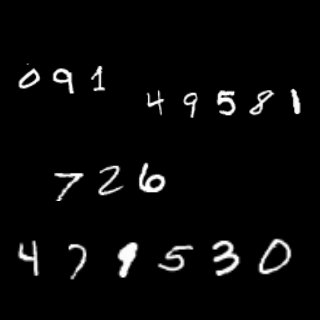 091
49581
726
479530